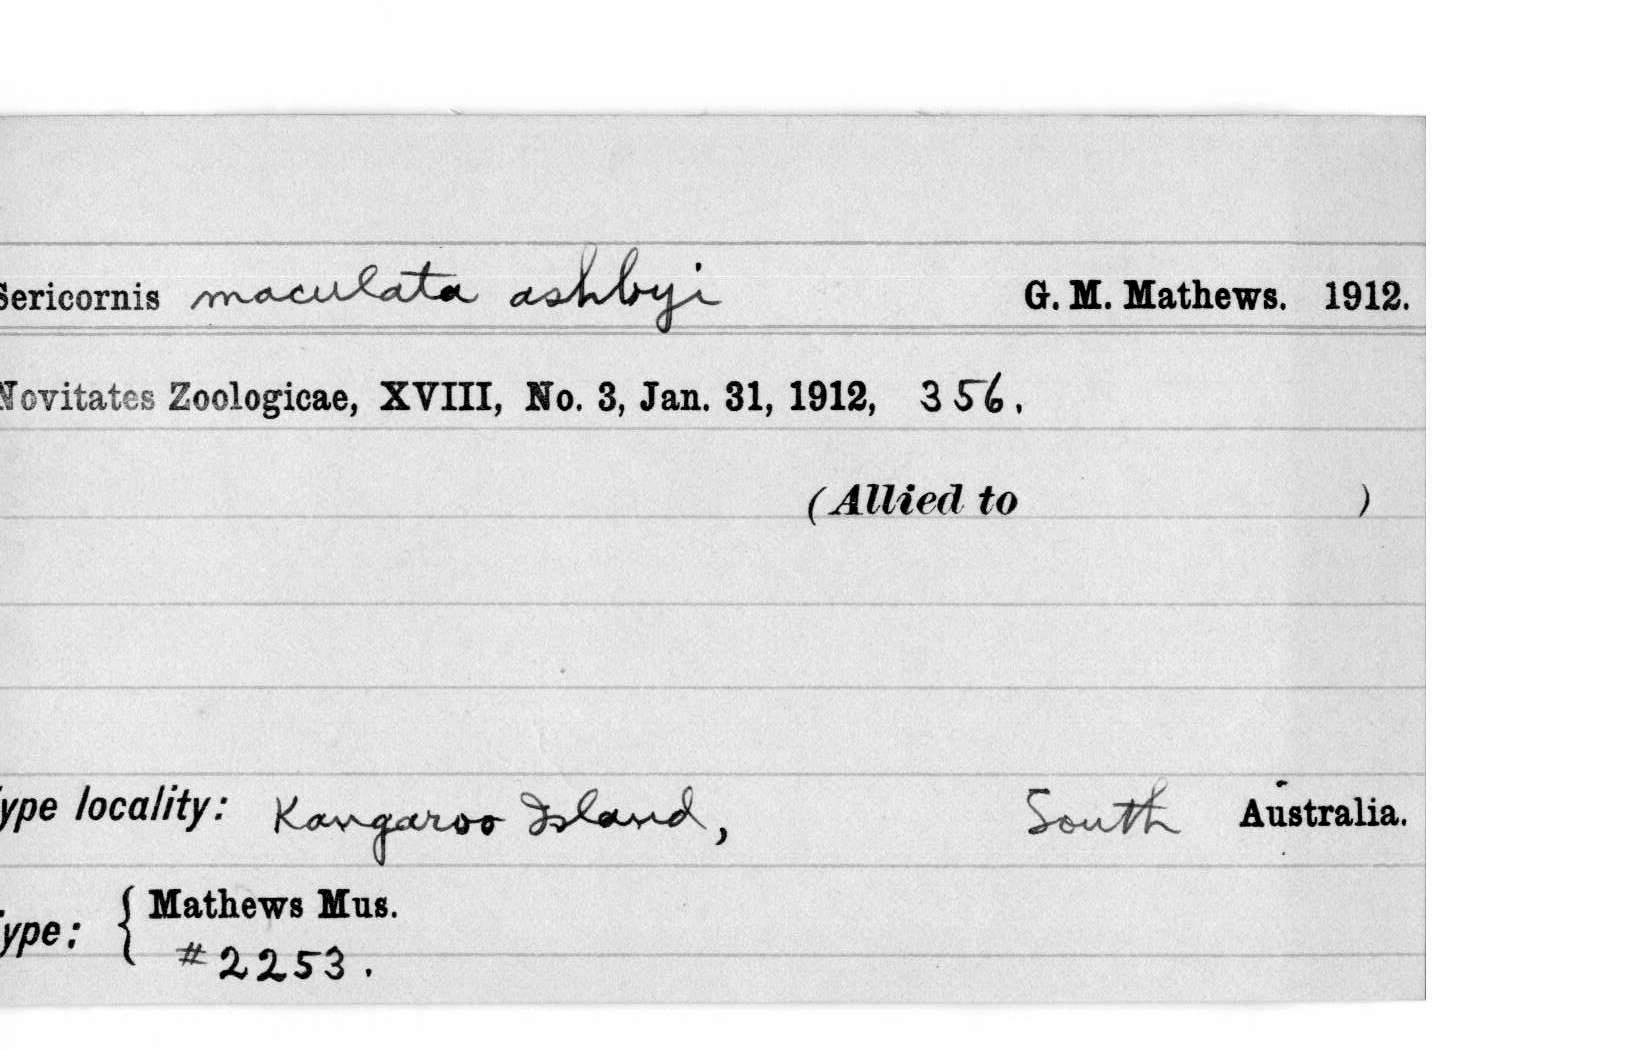 Sericornis maculata ashbyi G. M. Mathews. 1912.
Novitates Zoologicae, XVIII, No. 3, Jan. 31, 1912, 356.
(Allied to )
ype locality: Kangaroo Island, South Australia.
ype: { Mathews Mus.
#2253.